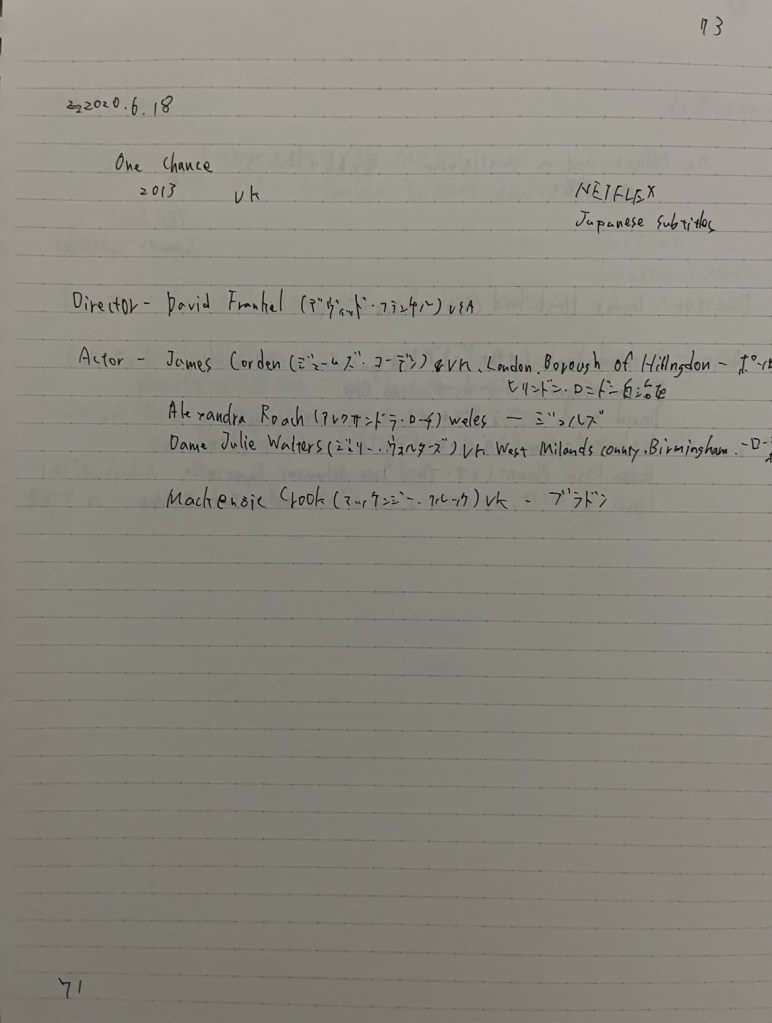 73
2020.6.18
One Chance
2013 UK NETFLEX
Japanese subtitles
Director - David Frankel (デヴィッド・フランケル) USA
Actor - James Corden (ジェームズ・コーデン) UK, London, Borough of Hillngdon - ポール
ヒリンドン・ロンドン自治区
Alexandra Roach (アレクサンドラ・ローチ) weles - ジュルズ
Dame Julie Walters (ジュリー・ウォルターズ) UK West Milands county, Birmingham. -
Mackenzie Crook (マッケンジー・クルック) UK - ブラドン
71